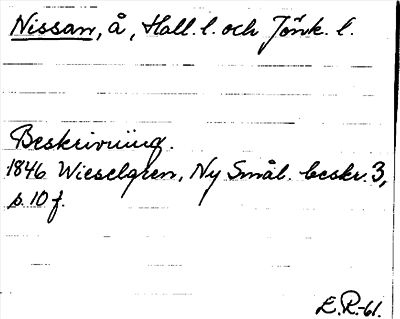 Nissan, å, Hall. l. och Jönk. l.
Beskrivning.
1846 Wieselgren, Ny Smål. beskr. 3,
s. 10 f.
E.R.-61.